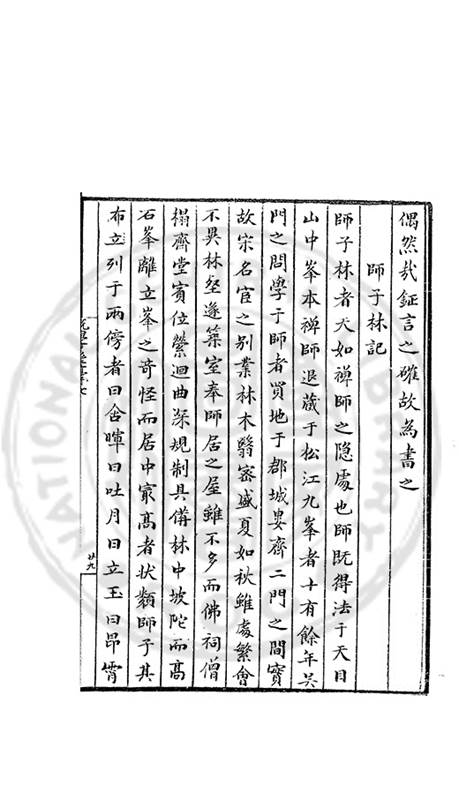 偶然哉鉦言之確故為書之
師子林記
師子林者天如禪師之隐處也師既得法于天目
山中峯本禪師退藏于松江九峯者十有餘年吴
門之問學于師者買地于郡城婁齊二門之間寔
故宋名宦之别業林木翳密盛夏如秋雖處繁會
不异林壑遂築室奉師居之屋雖不多而佛祠僧
榻齋堂賓位縈迴曲深規制具備林中坡陀而高
石峯離立峯之奇怪而居中冣高者状類師子其
布立列于兩傍者曰含暉曰吐月曰立玉曰昂霄
廿九